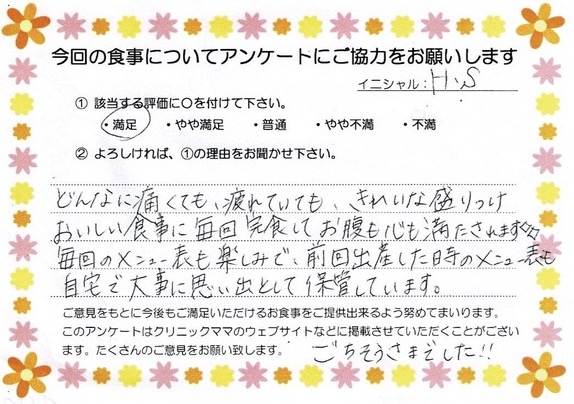 今回の食事についてアンケートにご協力をお願いします
イニシャル：H.S
① 該当する評価に〇を付けて下さい。
・満足 ・やや満足 ・普通 ・やや不満 ・不満
② よろしければ、①の理由をお聞かせ下さい。
どんなに痛くても、疲れていても、きれいな盛りつけ
おいしい食事に毎回完食してお腹も心も満たされます
毎回のメニュー表も楽しみで、前回出産した日時のメニュー表も
自宅で大事に思い出として保管しています。
ご意見をもとに今後もご満足いただけるお食事をご提供出来るよう努めてまいります。
このアンケートはクリニックママのウェブサイトなどに掲載させていただくことがござい
ます。たくさんのご意見をお願い致します。
ごちそうさまでした!!